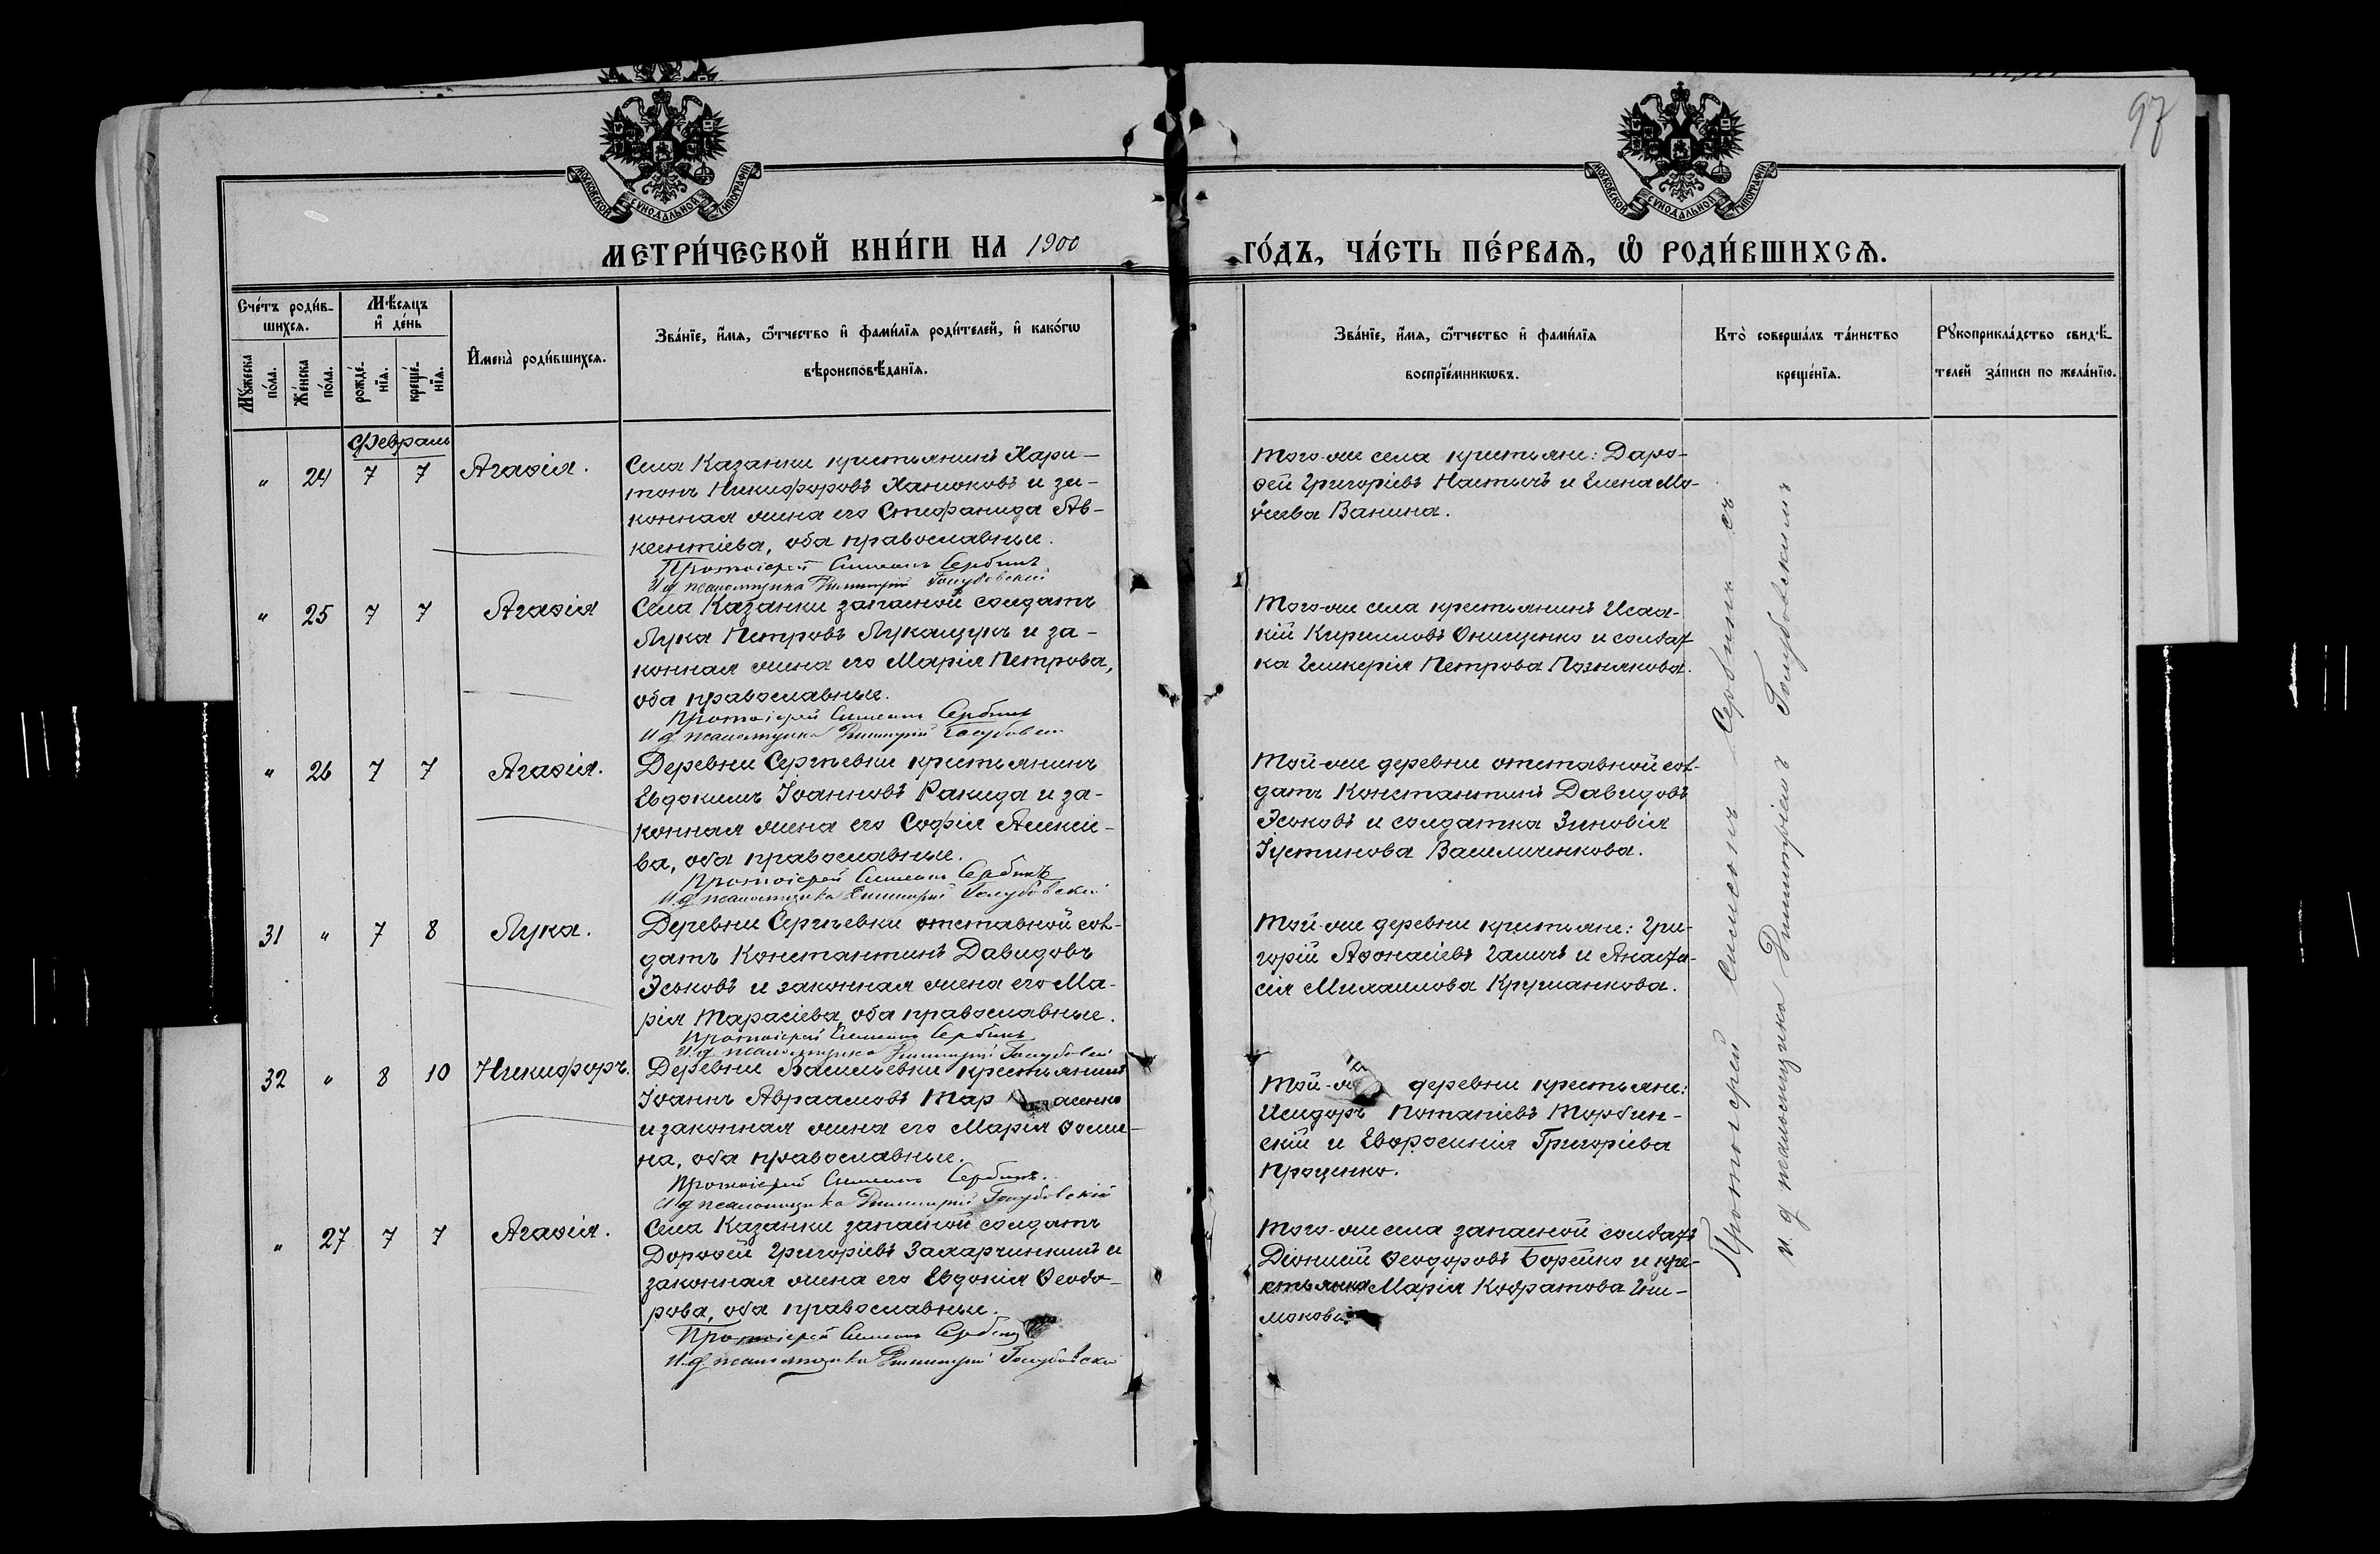 97
МОСКОВСКОЙ СѴНОДАЛЬНОЙ ТИПОГРАФІИ
МОСКОВСКОЙ СѴНОДАЛЬНОЙ ТИПОГРАФІИ
МЕТРИ́ЧЕСКОЙ КНИ́ГИ НА 1900
ГО́ДЪ, ЧА́СТЬ ПЕ́РВАѦ, Ѽ РОДИ́ВШИХСѦ.
Сче́тъ роди́в-
шихсѧ.
Мꙋ́жеска по́ла.
Же́нска по́ла.
Мѣ́сѧцъ и҆ де́нь
рожде́-
нїѧ.
креще́-
нїѧ.
И҆мена̀ роди́вшихсѧ.
Зва́нїе, и҆́мѧ, ѻ҆́тчество и҆ фами́лїѧ роди́телей, и҆ како́гѡ
вѣроисповѣ́данїѧ.
Зва́нїе, и҆́мѧ, ѻ҆́тчество и҆ фами́лїѧ
воспрїе́мникѡвъ.
Кто̀ соверша́лъ та́инство
креще́нїѧ.
Рꙋкоприкла́дство свидѣ́-
телей за́писи по жела́нїю.
Февраль
" 24 7 7 Агаѳія.
Села Казанки крестьянинъ Хари-
тонъ Никифоровъ Ханюковъ и за-
конная жена его Стефанида Ав-
кентіева, оба православные.
Протоіерей Симеонъ Сербинъ
И д псаломщика Димитрій Голубовскій
Того-же села крестьяне: Доро-
ѳей Григоріевъ Настичъ и Елена Мо-
ѵсеева Ванина.
" 25 7 7 Агаѳія
Села Казанки запасной солдатъ
Лука Петровъ Лукащукъ и за-
конная жена его Марія Петрова,
оба православные.
Протоіерей Симеонъ Сербинъ
И д псаломщика Димитрій Голубовскій
Того-же села крестьянинъ Исаа-
кій Кирилловъ Онищенко и солдат
ка Гликерія Петрова Познякова.
" 26 7 7 Агаѳія.
Деревни Сергѣевки крестьянинъ
Евдокимъ Іоанновъ Ракида и за-
конная жена его Софія Алексіе-
ва, оба православные.
Протоіерей Симеонъ Сербинъ
И. д псаломщика Димитрій Голубовскій
Той-же деревни отставной сол-
датъ Константинъ Давидовъ
Эськовъ и солдатка Зиновія
Іустинова Василиченкова.
31 " 7 8 Лука.
Деревни Сергѣевки отставной сол-
датъ Константинъ Давидовъ
Эськовъ и законная жена его Ма-
рія Тарасіева, оба православные.
Протоіерей Симеонъ Сербинъ
И. д псаломщика Димитрій Голубовскій
Той-же деревни крестьяне: Гри-
горій Аѳонасіевъ Галичъ и Анаста-
сія Михаилова Крушанкова.
32 " 8 10 Никифоръ.
Деревни Васильевки крестьянинъ
Іоаннъ Авраамовъ Тар
и законная жена его Марія Ѳоми-
на, оба православные.
Протоіерей Симеонъ Сербинъ.
И д псаломщика Димитрій Голубовскій
Той-же деревни крестьяне:
Исидоръ Потапіевъ Торбин-
скій и Евфросинія Григоріева
Проценко.
" 27 7 7 Агаѳія.
Села Казанки запасной солдатъ
Дороѳей Григоріевъ Захарчинкинъ и
законная жена его Евдокія Ѳеодо-
рова, оба православные.
Протоіерей Симеонъ Сербинъ
И. д псаломщика Димитрій Голубовскі
Того-же села запасной солдатъ
Діонисій Ѳеодоровъ Борейко и кре-
стьянка Марія Кодратова
Протоіерей Симеонъ Сербинъ съ
и. д псаломщика Димитріемъ Голубовскимъ